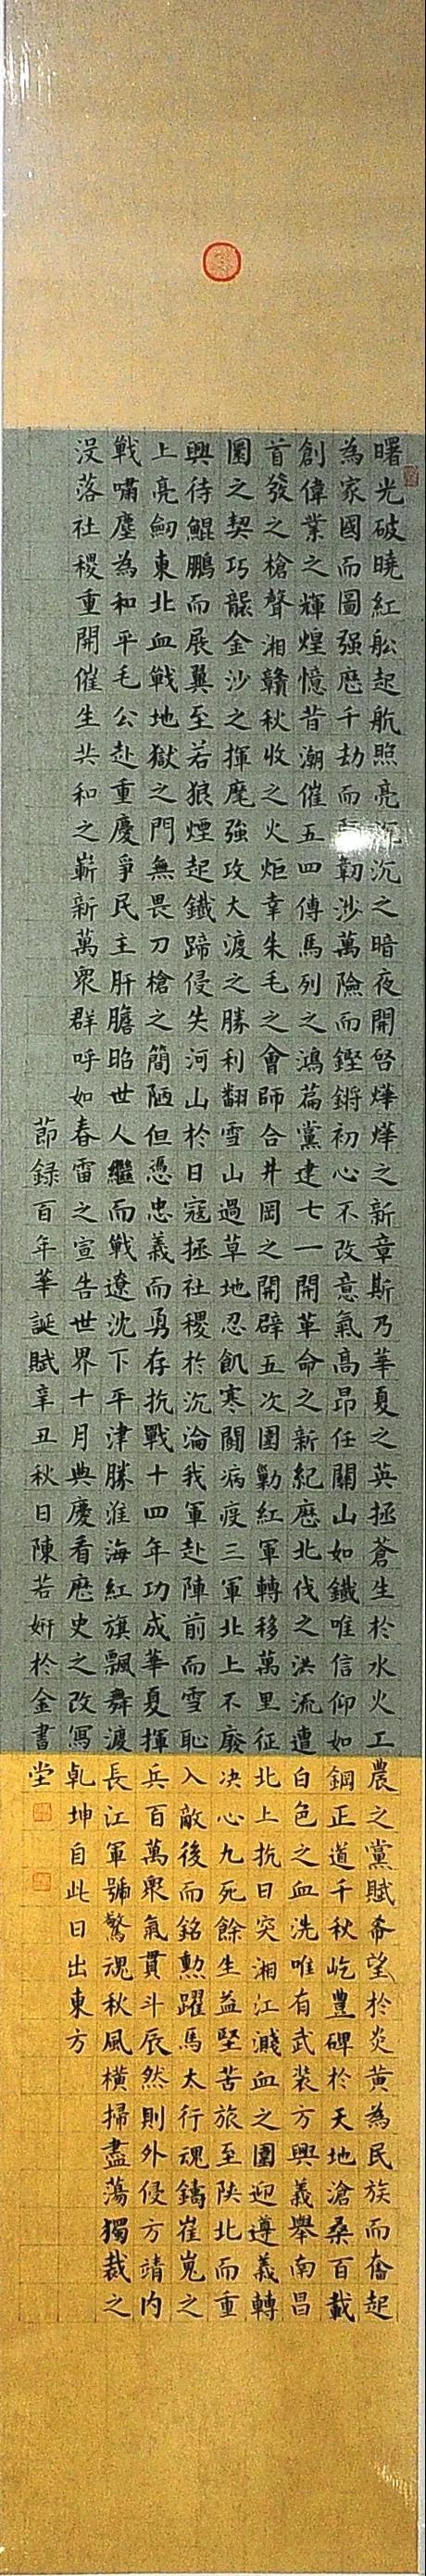 曙光破曉紅船起航照亮沉沉之暗夜開啓燁燁之新章斯乃華夏之英拯蒼生於水火工農之黨賦希望於炎黃為民族而奮起
為家國而圖强歷千劫而韌涉萬險而鏗鏘初心不改意氣高昂任關山如鐵唯信仰如鋼正道千秋屹豐碑於天地滄桑百載
創偉業之輝煌憶昔潮催五四傳馬列之鴻篇黨建七一開革命之新紀歷北伐之洪流遭白色之血洗唯有武装方興義舉南昌
首發之槍聲湘贛秋收之火炬幸朱毛之會師合井岡之開辟五次圍剿紅軍轉移萬里征北上抗日突湘江濺血之圍迎遵義轉
圜之契巧龍金沙之揮麾強攻大渡之勝利翻雪山過草地忍飢寒關病疫三軍北上不廢决心九死餘生益堅苦旅至陝北而重
興待鯤鵬而展翼至若狼煙起鐵蹄侵失河山於日寇拯社稷於沉淪我軍赴陣前而雪恥入敵後而銘勲躍馬太行魂鑄崔嵬之
上亮劒東北血戰地獄之門無畏刀槍之簡陋但憑忠義而勇存抗戰十四年功成華夏揮兵百萬衆氣貫斗辰然則外侵方靖内
戰嘯塵為和平毛公赴重慶爭民主肝膽昭世人繼而戰遼沈下平津勝淮海紅旗飄舞渡長江軍號驚魂秋風橫掃盡蕩獨裁之
没落社稷重開催生共和之嶄新萬衆群呼如春雷之宣告世界十月典慶看歷史之改寫乾坤自此日出東方
節録百年華誕賦辛丑秋日陳若妍於金書堂